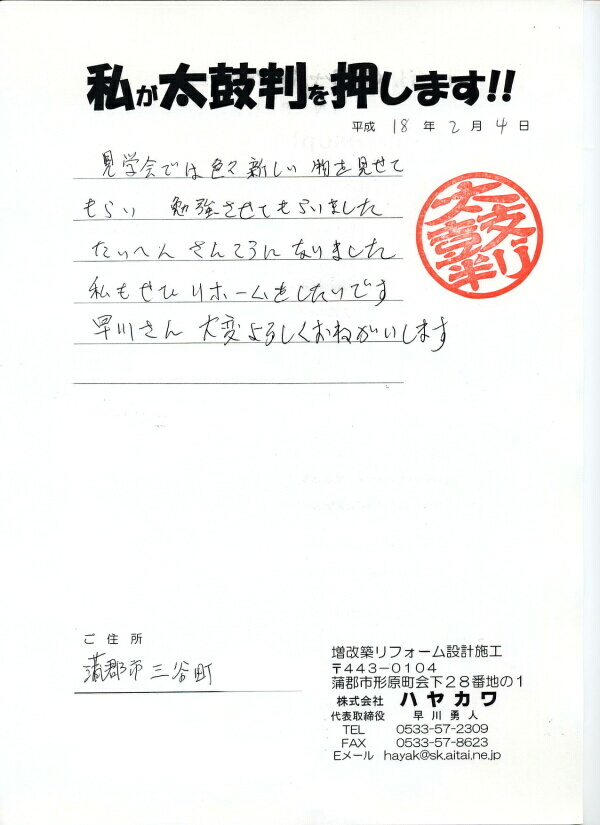 私が太鼓判を押します!!
平成 18 年 2 月 4 日
見学会では色々新しい物を見せて
もらい 勉強させてもらいました
たいへん さんこうに なりました
私もぜひ リホームをしたいです
早川さん 大変よろしくおねがいします
太鼓判
ご住所
蒲郡市三谷町
増改築リフォーム設計施工
〒443-0104
蒲郡市形原町会下28番地の1
株式会社 ハヤカワ
代表取締役 早川勇人
TEL 0533-57-2309
FAX 0533-57-8623
Eメール hayak@sk.aitai.ne.jp